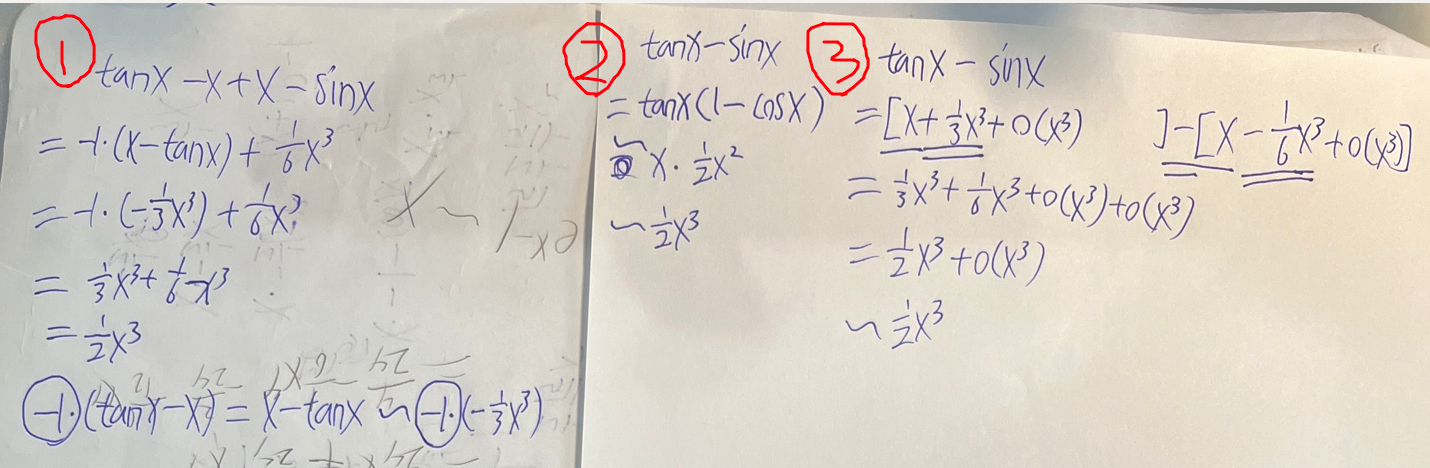 ①
tanx - x + x - sinx
= -1·(x - tanx) + 1/6 x³
= -1·(-1/3 x³) + 1/6 x³
= 1/3 x³ + 1/6 x³
= 1/2 x³
-1·(tanx - x) = x - tanx ~ -1·(-1/3 x³)
②
tanx - sinx
= tanx(1 - cosx)
~ x · 1/2 x²
~ 1/2 x³
③
tanx - sinx
= [x + 1/3 x³ + o(x³) ] - [x - 1/6 x³ + o(x³)]
= 1/3 x³ + 1/6 x³ + o(x³) + o(x³)
= 1/2 x³ + o(x³)
~ 1/2 x³